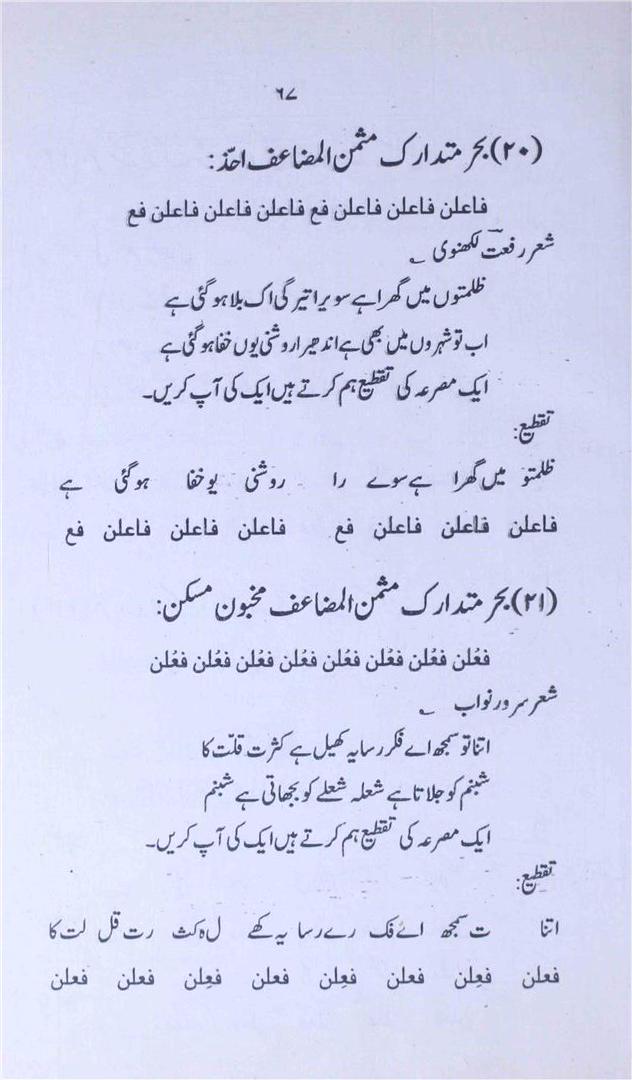 ۶۷
(۲۰) بحر متدارک مثمن المضاعف احذ:
فاعلن فاعلن فاعلن فع فاعلن فاعلن فاعلن فع
شعر رفعت لکھنوی
ظلمتوں میں گھرا ہے سویرا تیرگی اک بلا ہوگئی ہے
اب تو شہروں میں بھی ہے اندھیرا روشنی یوں خفا ہوگئی ہے
ایک مصرعہ کی تقطیع ہم کرتے ہیں ایک کی آپ کریں۔
تقطیع:
ظلمتو میں گھرا ہے سوے را روشنی یو خفا ہوگئی ہے
فاعلن فاعلن فاعلن فع فاعلن فاعلن فاعلن فع
(۲۱) بحر متدارک مثمن المضاعف مخبون مسکن:
فعْلن فعْلن فعْلن فعْلن فعْلن فعْلن فعْلن فعْلن
شعر سرور نواب
اتنا تو سمجھ اے فکر رسا یہ کھیل ہے کثرت قلّت کا
شبنم کو جلاتا ہے شعلہ شعلے کو بجھاتی ہے شبنم
ایک مصرعہ کی تقطیع ہم کرتے ہیں ایک کی آپ کریں۔
تقطیع:
اتنا ت سمجھ اے فک رے رسا یہ کھے ل ہ کث رت قل لت کا
فعلن فعِلن فعلن فعِلن فعلن فعِلن فعلن فعلن